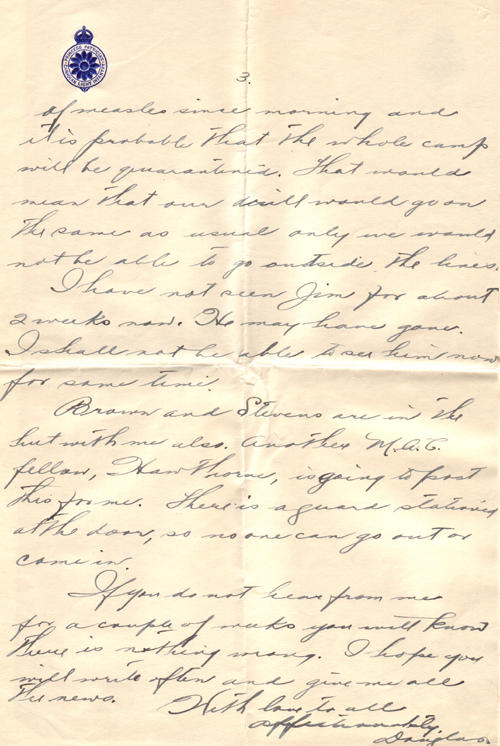 3.
of measles since morning and
it is probable that the whole camp
will be quarantined. That would
mean that our drill would go on
the same as usual only we would
not be able to go outside the lines.
I have not seen Jim for about
2 weeks now. He may have gone.
I shall not be able to see him now
for some time.
Brown and Stevens are in the
hut with me also. Another M.A.C.
fellow, Hawthorne, is going to post
this for me. There is a guard stationed
at the door, so no one can go out or
come in.
If you do not hear from me
for a couple of weeks you will know
there is nothing wrong. I hope you
will write often and give me all
the news. With love to all
affectionately
Douglas